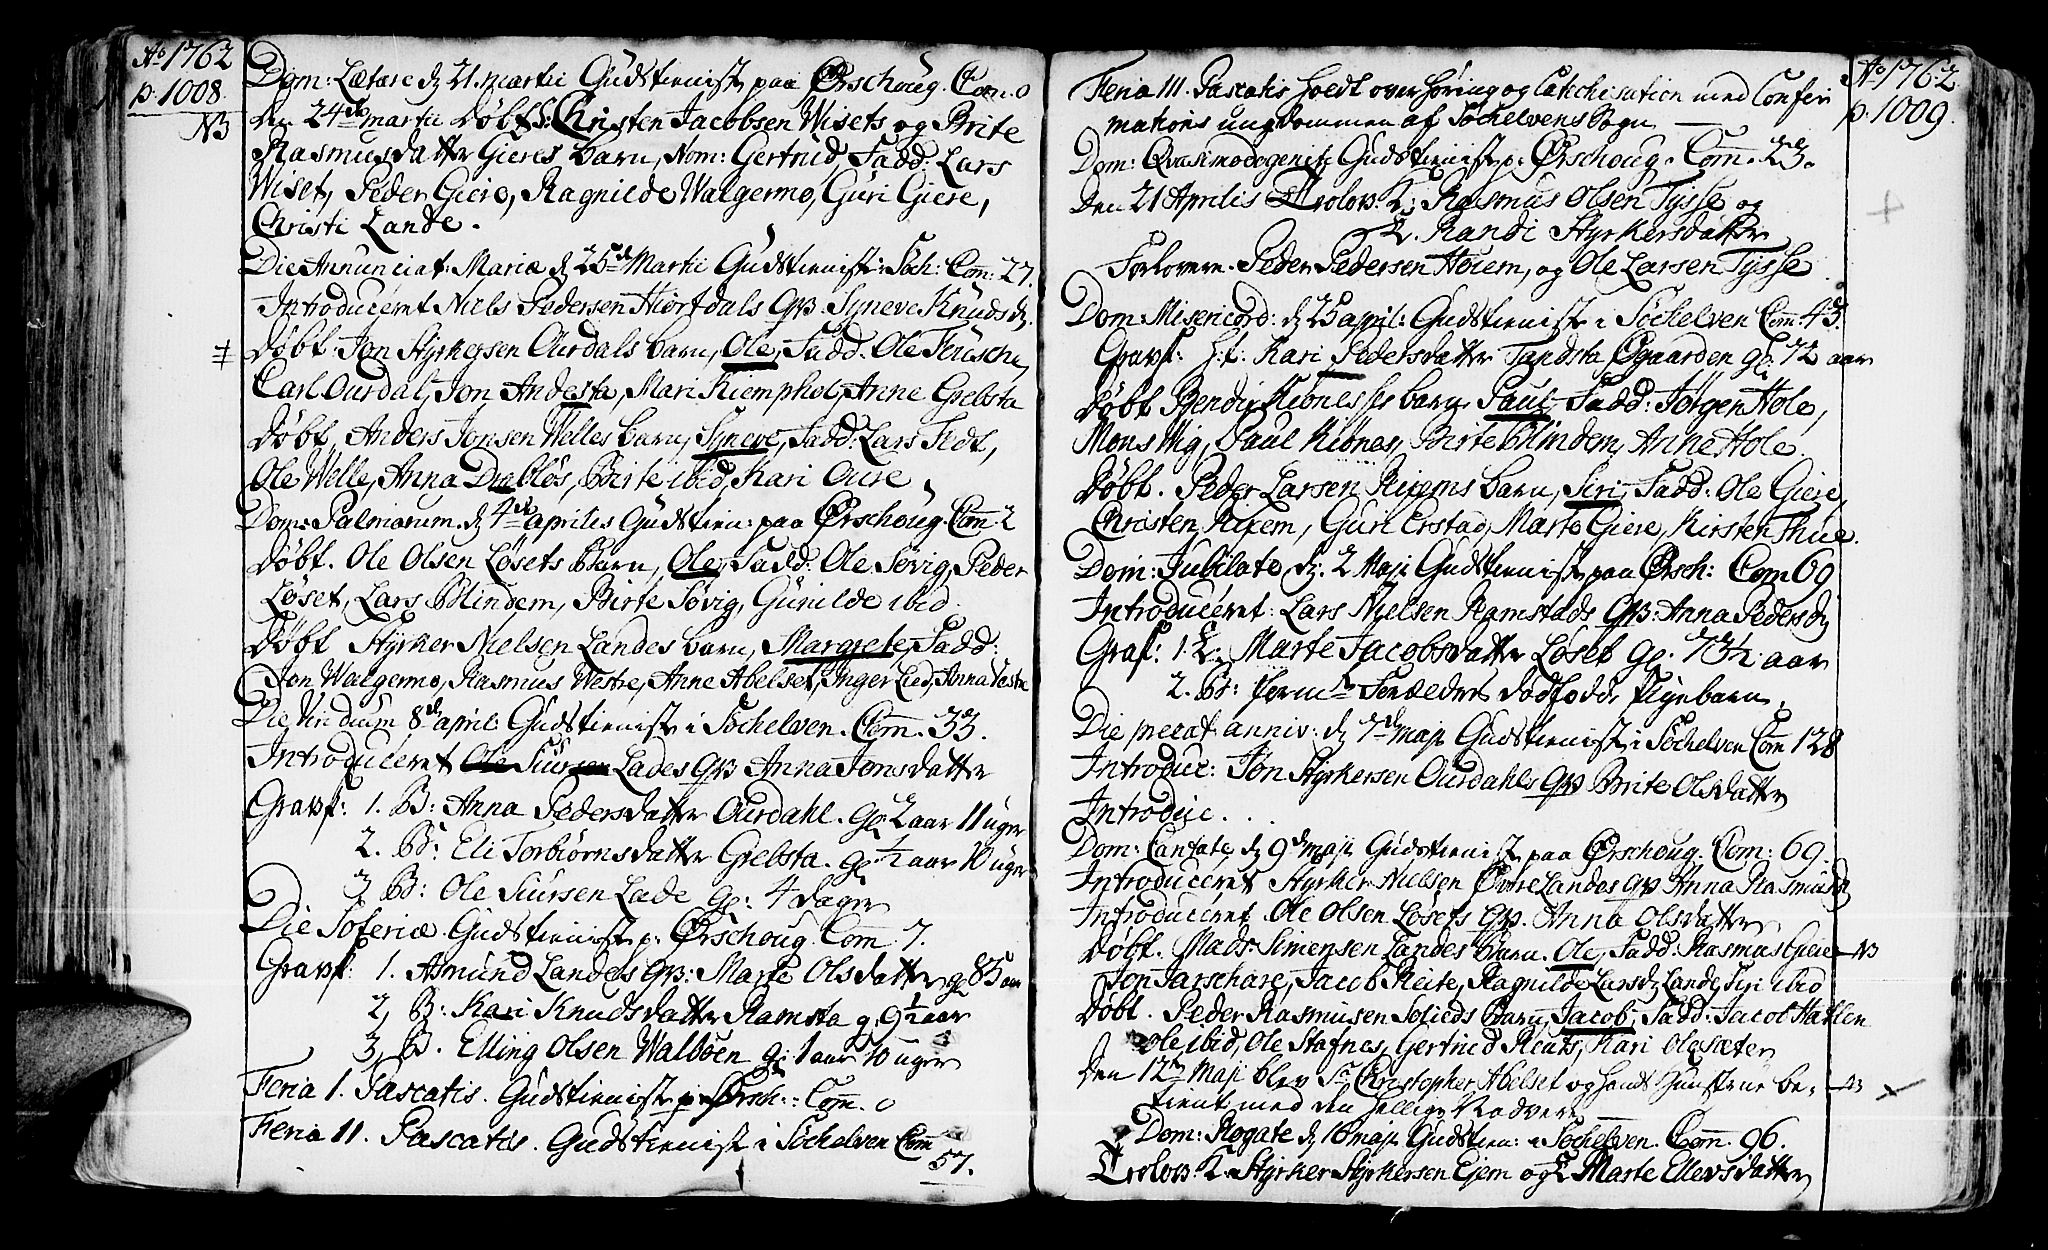 Ao 1762
p. 1008.
NB
Dom: Lætare d 21. martii Gudstienist paa Ørschoug. Com. 0
den 24de martii Døbt Christen Jacobsen Wisets og Brite
Rasmusdatter Gieres barn, Nom: Gertrud, Fadd: Lars
Wiset, Peder Giere, Ragnilde Walgermo, Guri Giere,
Christi Lande.
Die Annunciat: Mariæ d 25de Martii Gudstienist i Søch: Com: 27.
Introduceret Niels Pedersen Hiortdals qv: Syneve Knudsd.
Døbt: Jon Styrkersen Ourdals barn, Ole, Fadd: Ole
Carl Ourdal, Jon Andesta, Mari Kiemphol, Anne Grebsta
Døbt, Anders Jonsen Welles barn, Syneve, Fadd: Lars Tidt,
Ole Welle, Anna Drabløs, Birte ibid, Kari Oure.
Dom: Palmarum. d 4de aprilis Gudstien: paa Ørschoug. Com 2
Døbt. Ole Olsen Løsets Barn, Ole, Fadd: Ole Søvig, Peder
Løset, Lars Blindem, Birte Søvig, Gunilde ibid.
Døbt Styrker Nielsen Landes barn, Margrete, Fadd:
Jon Walgermo, Rasmus Westre, Anne Abelset, Inger Lied, Anna Vestre
Die Viridium 8de april: Gudstienist i Søchelven. Com. 33.
Introduceret Ole Siursen Lades qv Anna Jonsdatter
Gravf: 1. B: Anna Pedersdatter Ourdahl. gl 2 aar 11 uger
2. B: Eli Torbiørnsdatter Grebsta. gl 1/2 aar 10 uger
3 B: Ole Siursen Lade gl: 4 dager
Die Soteriæ. Gudstienist p: Ørschoug. Com 7.
Gravf: 1. Asmund Landes qv: Marte Olsdatter gl 85 aar
2, B: Kari Knudsdatter Ramsta g. 9 1/2 aar
3, B. Elling Olsen Walbøen g: 1 aar 10 uger
Feria 1. Pascatis. Gudstienist p: Ørsch: Com. 0
Feria 11. Pascatis. Gudstienist i Søchelven Com
57.
Ao 1762
p. 1009.
Feria 111. Pascatis holdt overhøring og Catechisation med Confir
mations ungdommen af Søchelvens Sogn
Dom: Qvasimodogenitz Gudstienist p: Ørschoug. Com. 23.
Den 21 Aprilis Trolov: K: Rasmus Olsen Tysse og
Randi Styrkersdatter
Forlovere. Peder Pedersen Høiem, og Ole Larsen Tysse
Dom: Misericord: d 25 april: Gudstienist i Søchelven Com: 43.
Gravf: Kari Pedersdatter Tandsta Øgaarden gl: 72 aar
Døbt Bendix Ribnesses barn, Paul, Fadd: Jørgen Hole,
Mons Wig, Paul Ribnes, Birte Blindem, Anne Hole.
Døbt. Peder Larsen Rixems barn, Siri, Fadd: Ole Giere,
Christen Rixem, Guri Erstad, Marte Giere, Kirsten Thue.
Dom: Jubilate d. 2 Maji Gudstienist paa Ørsch: Com 69
Introduceret: Lars Nielsen Ramstads qv: Anna Pedersd
Graf: 1. Marte Jacobsdatter Løset gl. 73 1/2 aar
2. B: Forældres dødfødde Pigebarn.
Die precat: anniv: d 7de maji Gudstienist i Søchelven Com 128
Introduc: Jon Styrkersen Ourdahls qv Brite Olsdatter
Introduc . . .
Dom: Cantate d 9de maji Gudstienist paa Ørschoug. Com: 69.
Introduceret Styrker Nielsen Øvre Landes qv Anna Rasmusd
Introduceret Ole Olsen Løsets qv. Anna Olsdatter
Døbt. Mads Simensen Landes Barn. Ole, Fadd: Rasmus Giere NB
Jon Jarschare, Jacob Reite, Ragnilde Larsd. Lande, Siri ibid
Døbt. Peder Rasmusen Solieds Barn, Jacob, Fadd: Jacob Hatlen
Ole ibid, Ole Stafnes, Gertrud Reuts, Kari Olesæter
Den 12te Maji blev Sr Christopher Abelset og hands Hustrue be- NB
tient med den hellige Nadvere
Dom: Rogate d 16 maji Gudstien: i Søchelven. Com. 96.
Trolov: K. Styrker Styrkersen Ejem og Marte Ellevsdatter